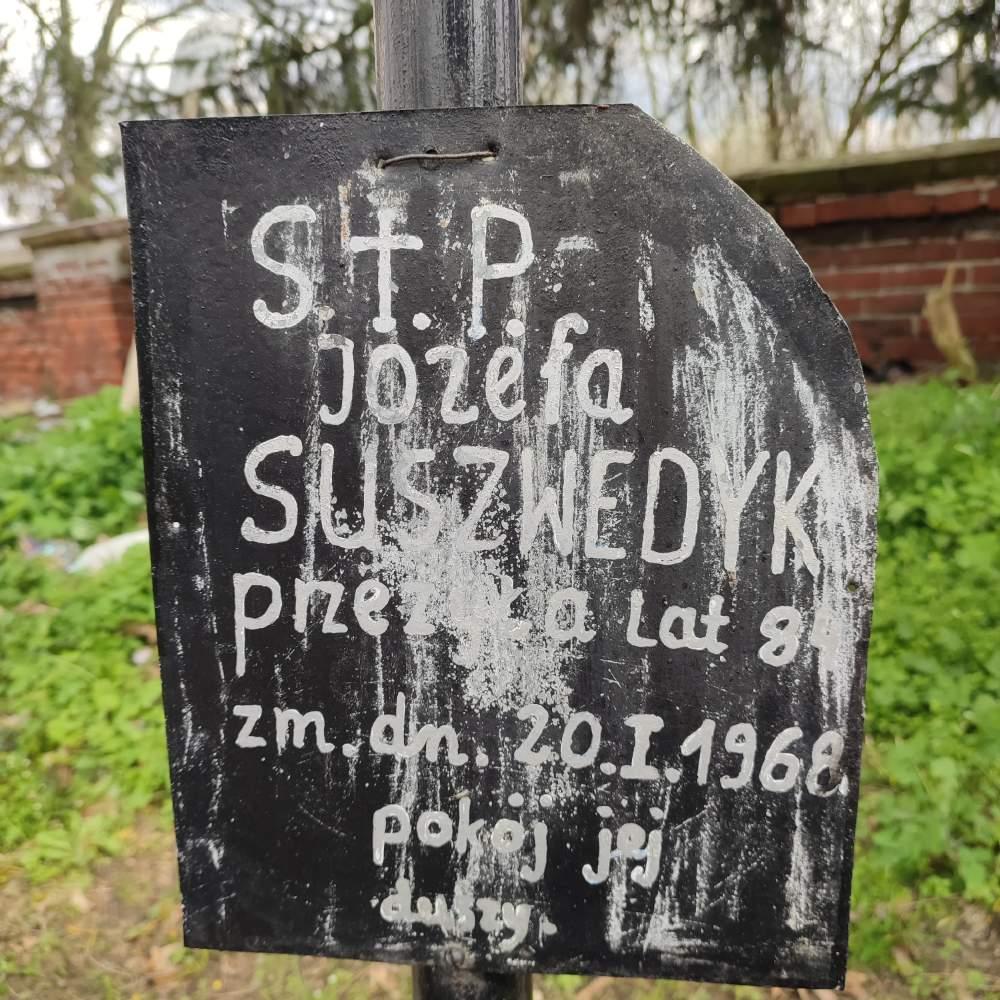 S † P
Józefa
SUSZWEDYK
przeżyła lat 84
zm. dn. 20.I.1968
pokój jej
duszy.